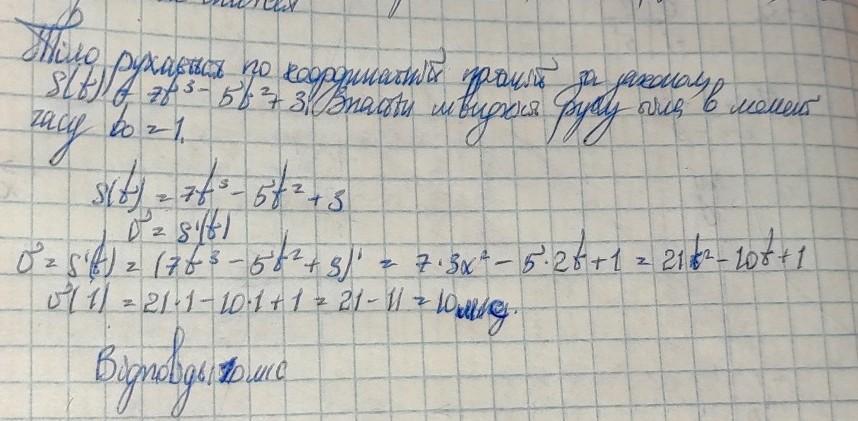 Тіло рухається по координатній прямій за законом
S(t) = 7t³ - 5t² + 3. Знайти швидкість руху тіла в момент
часу t₀ = 1.
S(t) = 7t³ - 5t² + 3
υ = S'(t)
υ = S'(t) = (7t³ - 5t² + 3)' = 7·3x² - 5·2t + 1 = 21t² - 10t + 1
υ(1) = 21·1 - 10·1 + 1 = 21 - 11 = 10
Відповідь: 10 м/с